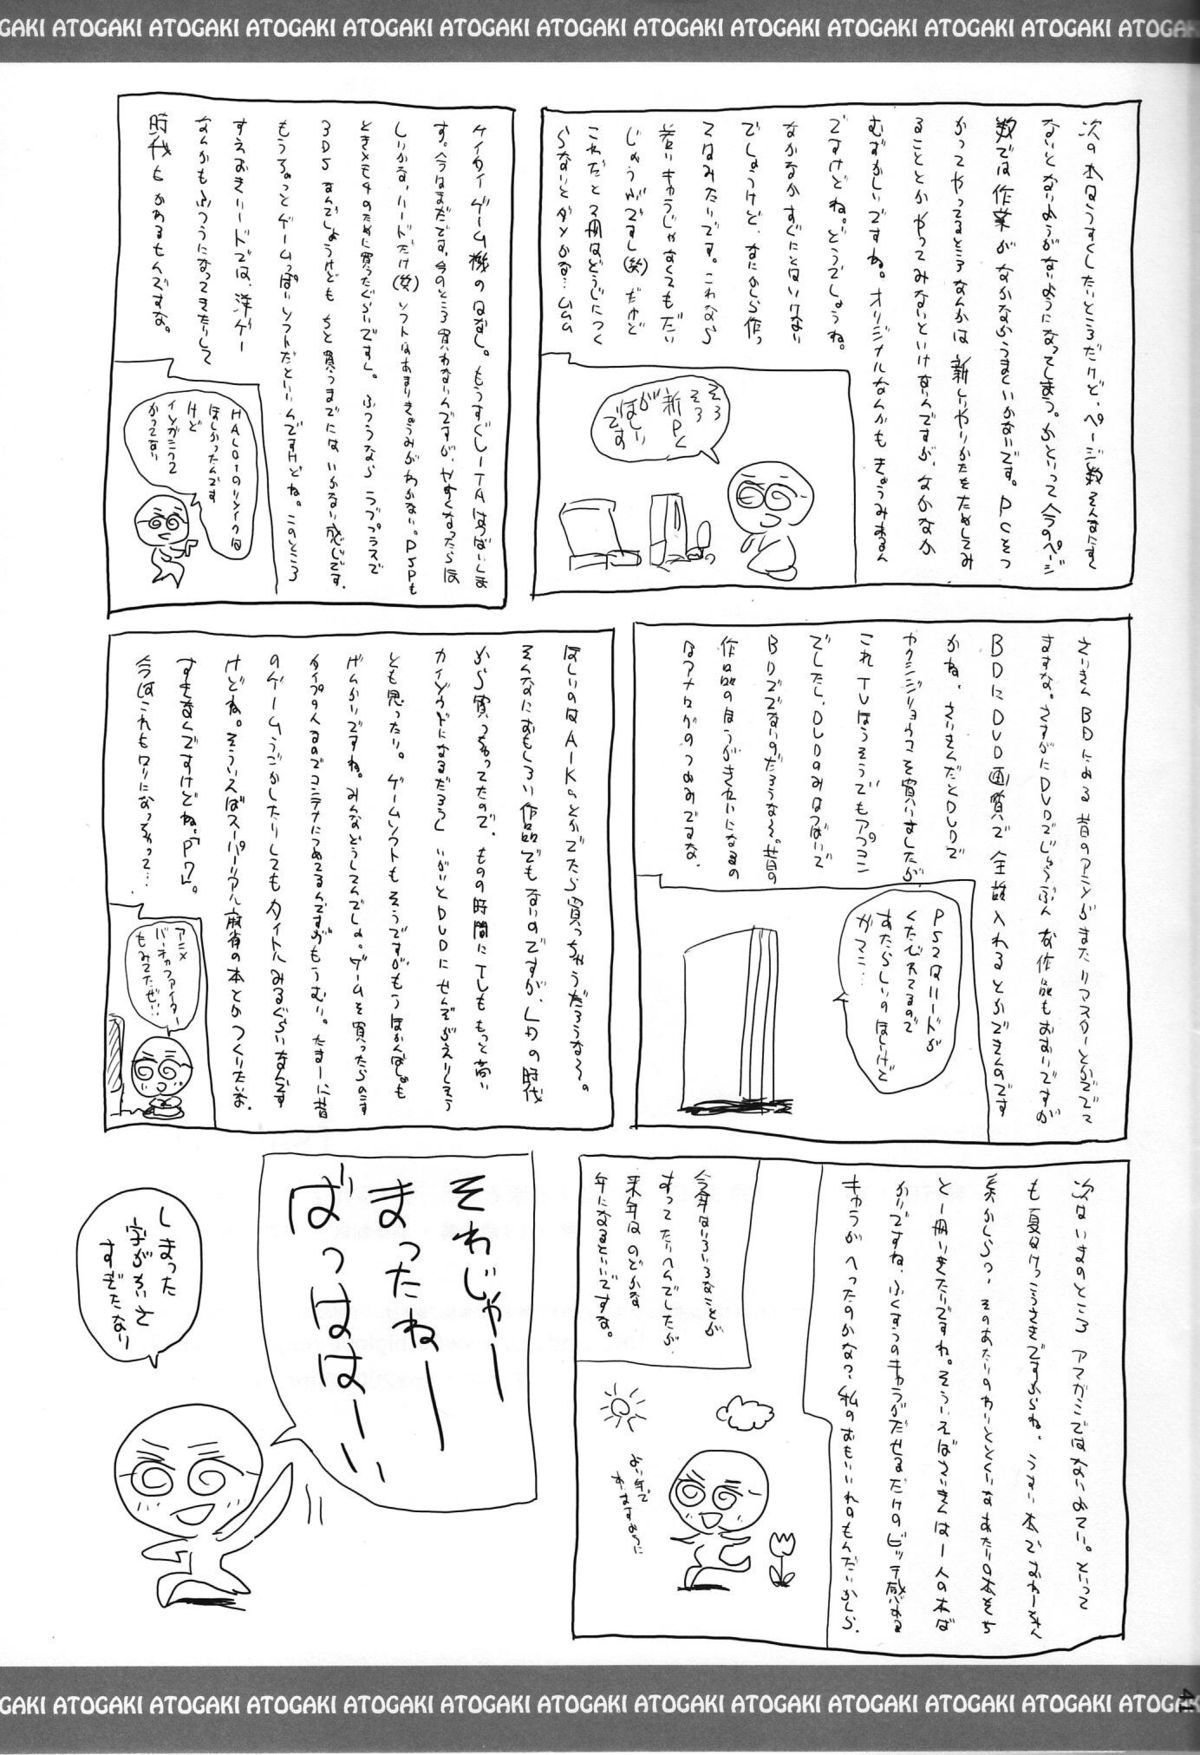 GAKI ATOGAKI ATOGAKI ATOGAKI ATOGAKI ATOGAKI ATOGAKI ATOGAKI ATOGAKI ATOGAKI ATOGAKI ATOGAK
次の本はうすくしたいところだけど、ページ数そんなにすく
ないとないようがないようになってしまう。かといって今のページ
数では作業がなかなかうまくいかないです。PCをつ
かってやってるところなんかは新しいやりかたをためしてみ
ることとかやってみないといけないんですが、なかなか
むずかしいですね。オリジナルなんかもきょうみあるん
ですけどね。どうでしょうね。
なかなかすぐにとはいけない
でしょうけど、なにかしら作っ
てはみたいです。これなら
若いキャラじゃなくてもだい
じょうぶですし(笑)だけど
これだと2冊はどうじにつく
らないとダメかな…ムムム
そろ
そろ
新PC
がほしい
です
ケイタイゲーム機のはなし。もうすぐVITAはつばいしま
す。今はまだです。今のところ買わないんですが、やすくなったらほ
しいかな、ハードだけ(笑)ソフトはあまりきょうみがわかない。PSPも
ときメモ4のために買ったぐらいですし。ふつうならラブプラスで
3DSなんでしょうけどもちと買うまでにはいかない感じです。
もうちょっとゲームっぽいソフトだといいんですけどね。このところ
すえおきハードでは、洋ゲー
なんかもふつうになってきたりして
時代もかわるもんですな。
HALO1のリメイクは
ほしかったんです
けど
インがニワで
かってない
さいきんBDによる昔のアニメがまたリマスターとかででて
ますな。さすがにDVDでじゅうぶんな作品もおおいですが
BDにDVD画質で全話入れるとかできんのです
かね。さいきんだとDVDで
ヤクシジョウゴを買いましたが、
これTVほうそうでもアプコン
でしたし、DVDのみはつばいで
BDででないのだろうな〜。昔の
作品のほうがきれいになるの
はアナログのつよみですな。
PS2はハードが
くたびれてるので
あたらしいのほしいけど
ガマン…
ほしいのはAIKaとかでたら買っちゃうだろうな〜。
そんなにおもしろい作品でもないのですが、LDの時代
から買っちゃってたので、ものの時間にしてももっと高い
カイゾウドになるだろうし、いがいとDVDにせんぞがえりしそう
とも思ったり。ゲームソフトもそうですがもうほかんばしょも
げんかいですね。みんなどうしてんでしょ。ゲームを買ったらのこす
タイプの人なるのでコンテナにつめてるんですがもうむり。たまーに昔
のゲームうごかしたりしてもタイトルみるぐらいなんです
けどね。そういえばスーパーリアル麻雀の本とかつくりたいな。
すきなんですけどね。「P7」。
今はこれもロリになっちゃって…
アニメ
バーチャファイター
もみてたぜい…
次はいまのところアマガミではないよてい。といって
も夏はけっこうさきですからね。うすい本でおわーきん
系かしらっ、そのあたりのわりととくいなあたりの本をち
と一冊いきたいですね。そういえばさいきんは一人の本ば
かりですね、ふくすうのキャラがだせるだけのビッチ感ある
キャラがへったのかな？私のおもいいれのもんだいかしら。
今年はいろいろなことが
すってたいへんでしたが、
来年はのどかな
年になるといいですな。
よい年で
ありますように
それじゃー
まったねー
ばっははーい
しまった
字がかいと
すぎたなり
GAKI ATOGAKI ATOGAKI ATOGAKI ATOGAKI ATOGAKI ATOGAKI ATOGAKI ATOGAKI ATOGAKI ATOGAKI ATOGAK
41